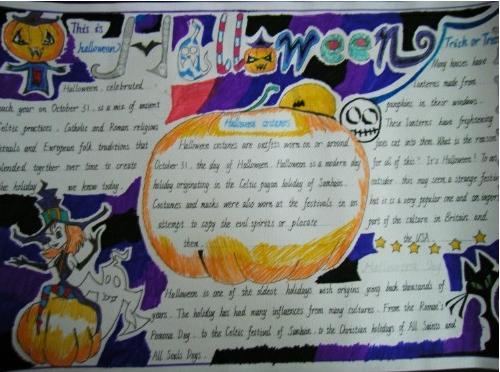 This is
halloween
Halloween
Trick or Trea
Halloween, celebrated
each year on October 31, is a mix of ancient
Celtic practices, Catholic and Roman religious
rituals and European folk traditions that
blended together over time to create
the holiday we know today.
Halloween costumes
Halloween costumes are outfits worn on or around
October 31, the day of Halloween. Halloween is a modern day
holiday originating in the Celtic pagan holiday of Samhain.
Costumes and masks were also worn at the festivals in an
attempt to copy the evil spirits or placate
them.
Many houses have
lanterns made from
pumpkins in their windows.
These lanterns have frightening
faces cut into them. What is the reason
for all of this? It's Halloween! To an
outsider, this may seem a strange festival
but it is a very popular one and an import
part of the culture in Britain and
the USA
Halloween Day
Halloween is one of the oldest holidays with origins going back thousands of
years. The holiday has had many influences from many cultures. From the Roman's
Pomona Day, to the Celtic festival of Samhain, to the Christian holidays of All Saints and
All Souls Days.